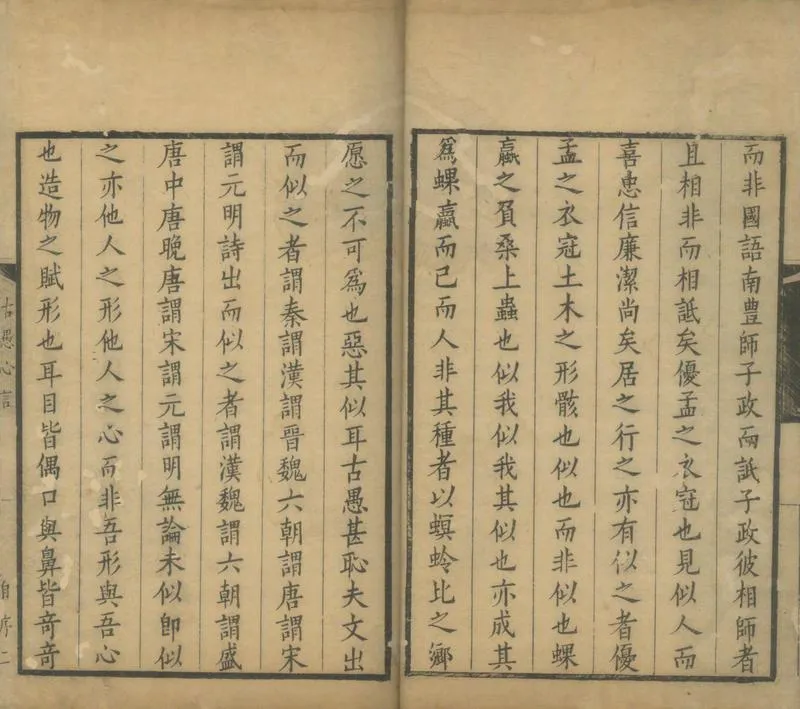 而非國語南豊師子政而詆子政彼相師者
且相非而相詆矣優孟之衣冠也見似人而
喜忠信廉潔尚矣居之行之亦有似之者優
孟之衣冠土木之形骸也似也而非似也蜾
蠃之負桑上蟲也似我似我其似也亦成其
爲蜾蠃而已而人非其種者以螟蛉比之鄉
愿之不可爲也惡其似耳古愚甚恥夫文出
而似之者謂秦謂漢謂晉魏六朝謂唐謂宋
謂元明詩出而似之者謂漢魏謂六朝謂盛
唐中唐晚唐謂宋謂元謂明無論未似卽似
之亦他人之形他人之心而非吾形與吾心
也造物之賦形也耳目皆偶口與鼻皆奇奇
古愚心言
自序二